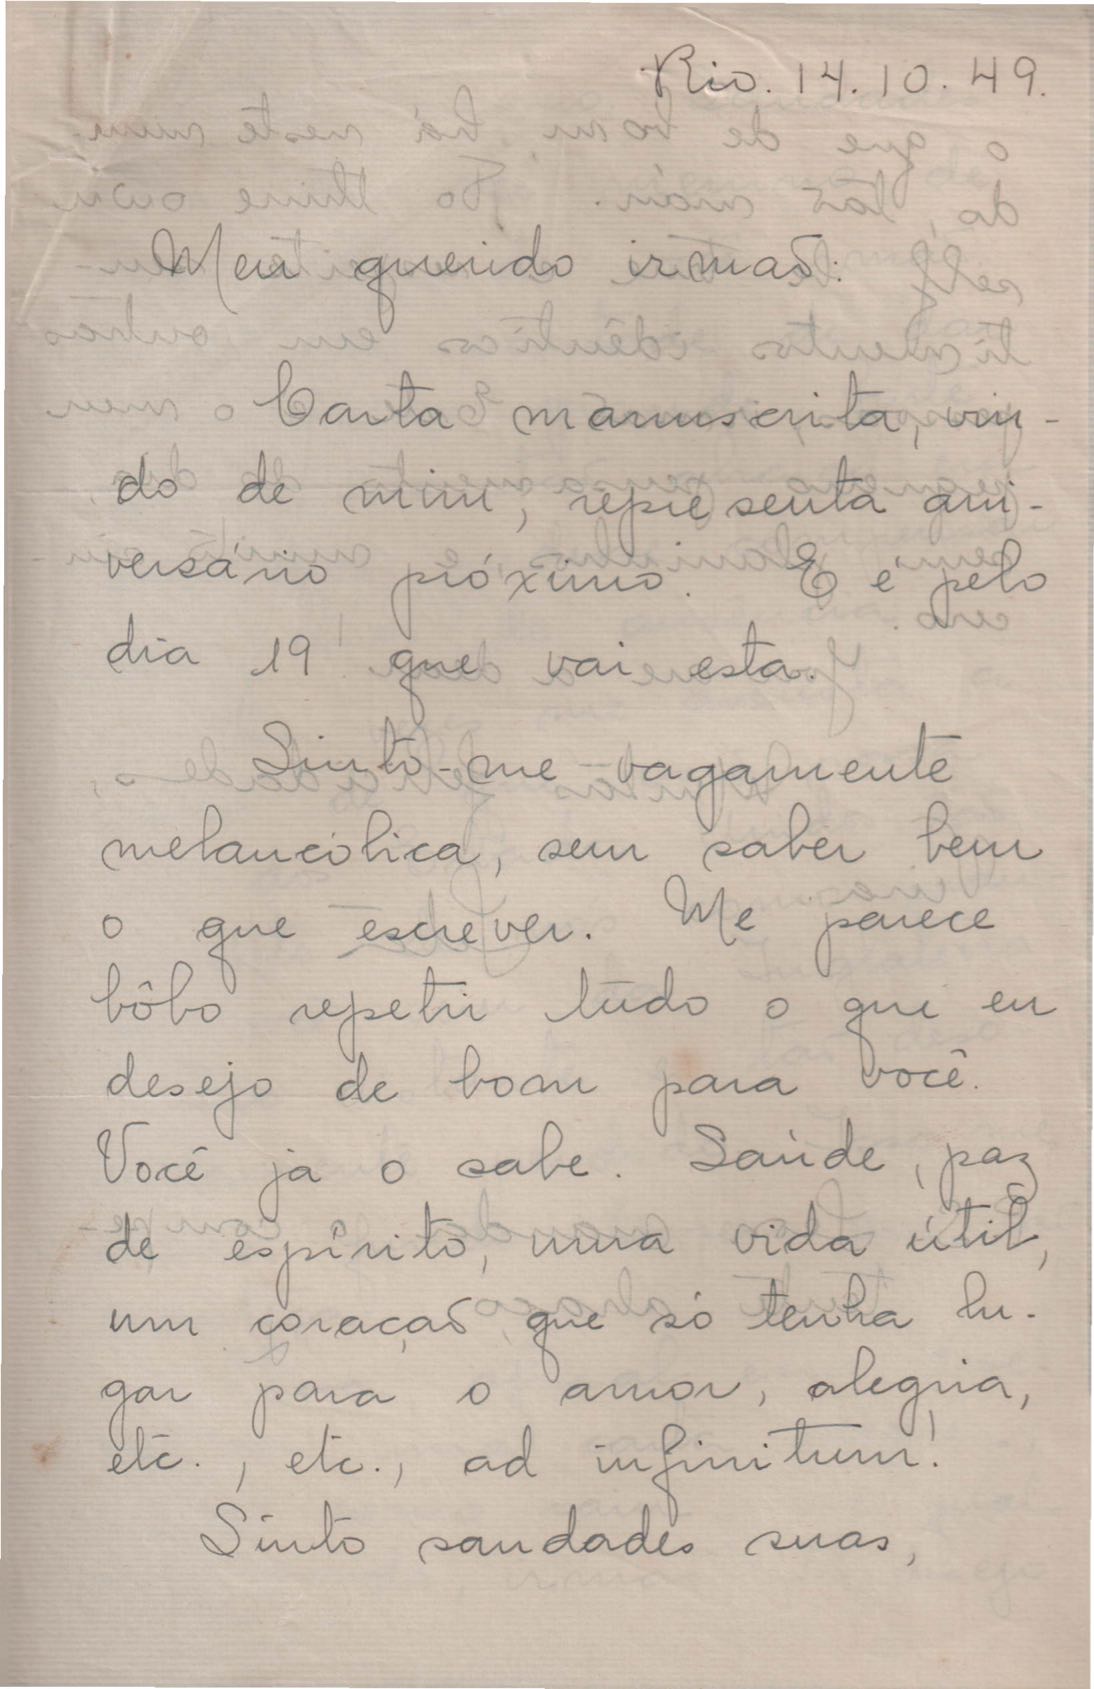 Rio. 14.10.49.
Meu querido irmão:
Carta manuscrita, vin-
do de mim, representa ani-
versário próximo. E é pelo
dia 19 que vai esta.
Sinto-me vagamente
melancólica, sem saber bem
o que escrever. Me parece
bôbo repetir tudo o que eu
desejo de bom para você.
Você já o sabe. Saúde, paz
de espírito, uma vida útil,
um coração que só tenha lu-
gar para o amor, alegria,
etc., etc., ad infinitum!
Sinto saudades suas,